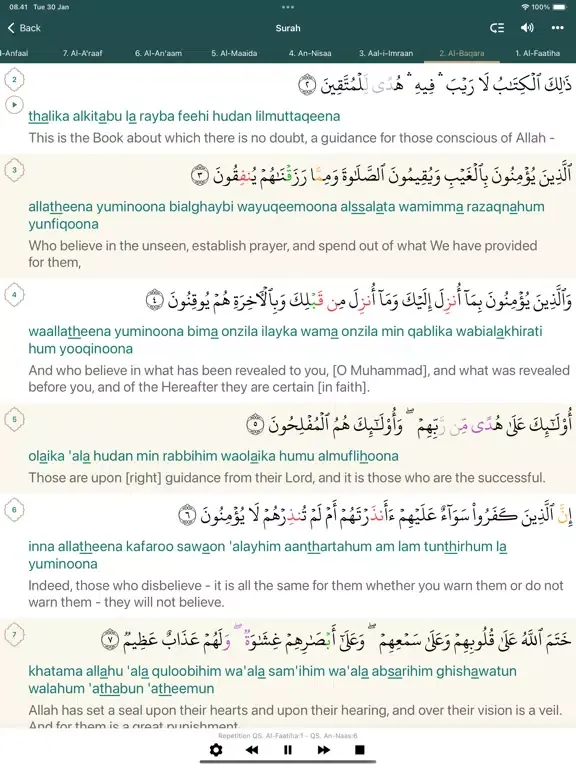 08.41 Tue 30 Jan
100%
Back
Surah
l-Anfaal 7. Al-A'raaf 6. Al-An'aam 5. Al-Maaida 4. An-Nisaa 3. Aal-i-Imraan 2. Al-Baqara 1. Al-Faatiha
2
ذَٰلِكَ ٱلْكِتَـٰبُ لَا رَيْبَ ۛ فِيهِ ۛ هُدًى لِّلْمُتَّقِينَ ٢
thalika alkitabu la rayba feehi hudan lilmuttaqeena
This is the Book about which there is no doubt, a guidance for those conscious of Allah -
3
ٱلَّذِينَ يُؤْمِنُونَ بِٱلْغَيْبِ وَيُقِيمُونَ ٱلصَّلَوٰةَ وَمِمَّا رَزَقْنَـٰهُمْ يُنفِقُونَ ٣
allatheena yuminoona bialghaybi wayuqeemoona alssalata wamimma razaqnahum
yunfiqoona
Who believe in the unseen, establish prayer, and spend out of what We have provided
for them,
4
وَٱلَّذِينَ يُؤْمِنُونَ بِمَآ أُنزِلَ إِلَيْكَ وَمَآ أُنزِلَ مِن قَبْلِكَ وَبِٱلْـَٔاخِرَةِ هُمْ يُوقِنُونَ ٤
waallatheena yuminoona bima onzila ilayka wama onzila min qablika wabialakhirati
hum yooqinoona
And who believe in what has been revealed to you, [O Muhammad], and what was revealed
before you, and of the Hereafter they are certain [in faith].
5
أُو۟لَـٰٓئِكَ عَلَىٰ هُدًى مِّن رَّبِّهِمْ ۖ وَأُو۟لَـٰٓئِكَ هُمُ ٱلْمُفْلِحُونَ ٥
olaika 'ala hudan min rabbihim waolaika humu almuflihoona
Those are upon [right] guidance from their Lord, and it is those who are the successful.
6
إِنَّ ٱلَّذِينَ كَفَرُوا۟ سَوَآءٌ عَلَيْهِمْ ءَأَنذَرْتَهُمْ أَمْ لَمْ تُنذِرْهُمْ لَا يُؤْمِنُونَ ٦
inna allatheena kafaroo sawaon 'alayhim aanthartahum am lam tunthirhum la
yuminoona
Indeed, those who disbelieve - it is all the same for them whether you warn them or do not
warn them - they will not believe.
7
خَتَمَ ٱللَّهُ عَلَىٰ قُلُوبِهِمْ وَعَلَىٰ سَمْعِهِمْ ۖ وَعَلَىٰٓ أَبْصَـٰرِهِمْ غِشَـٰوَةٌ ۖ وَلَهُمْ عَذَابٌ عَظِيمٌ ٧
khatama allahu 'ala quloobihim wa'ala sam'ihim wa'ala absarihim ghishawatun
walahum 'athabun 'atheemun
Allah has set a seal upon their hearts and upon their hearing, and over their vision is a veil.
And for them is a great punishment.
Repetition QS. Al-Faatiha:1 - QS. An-Naas:6